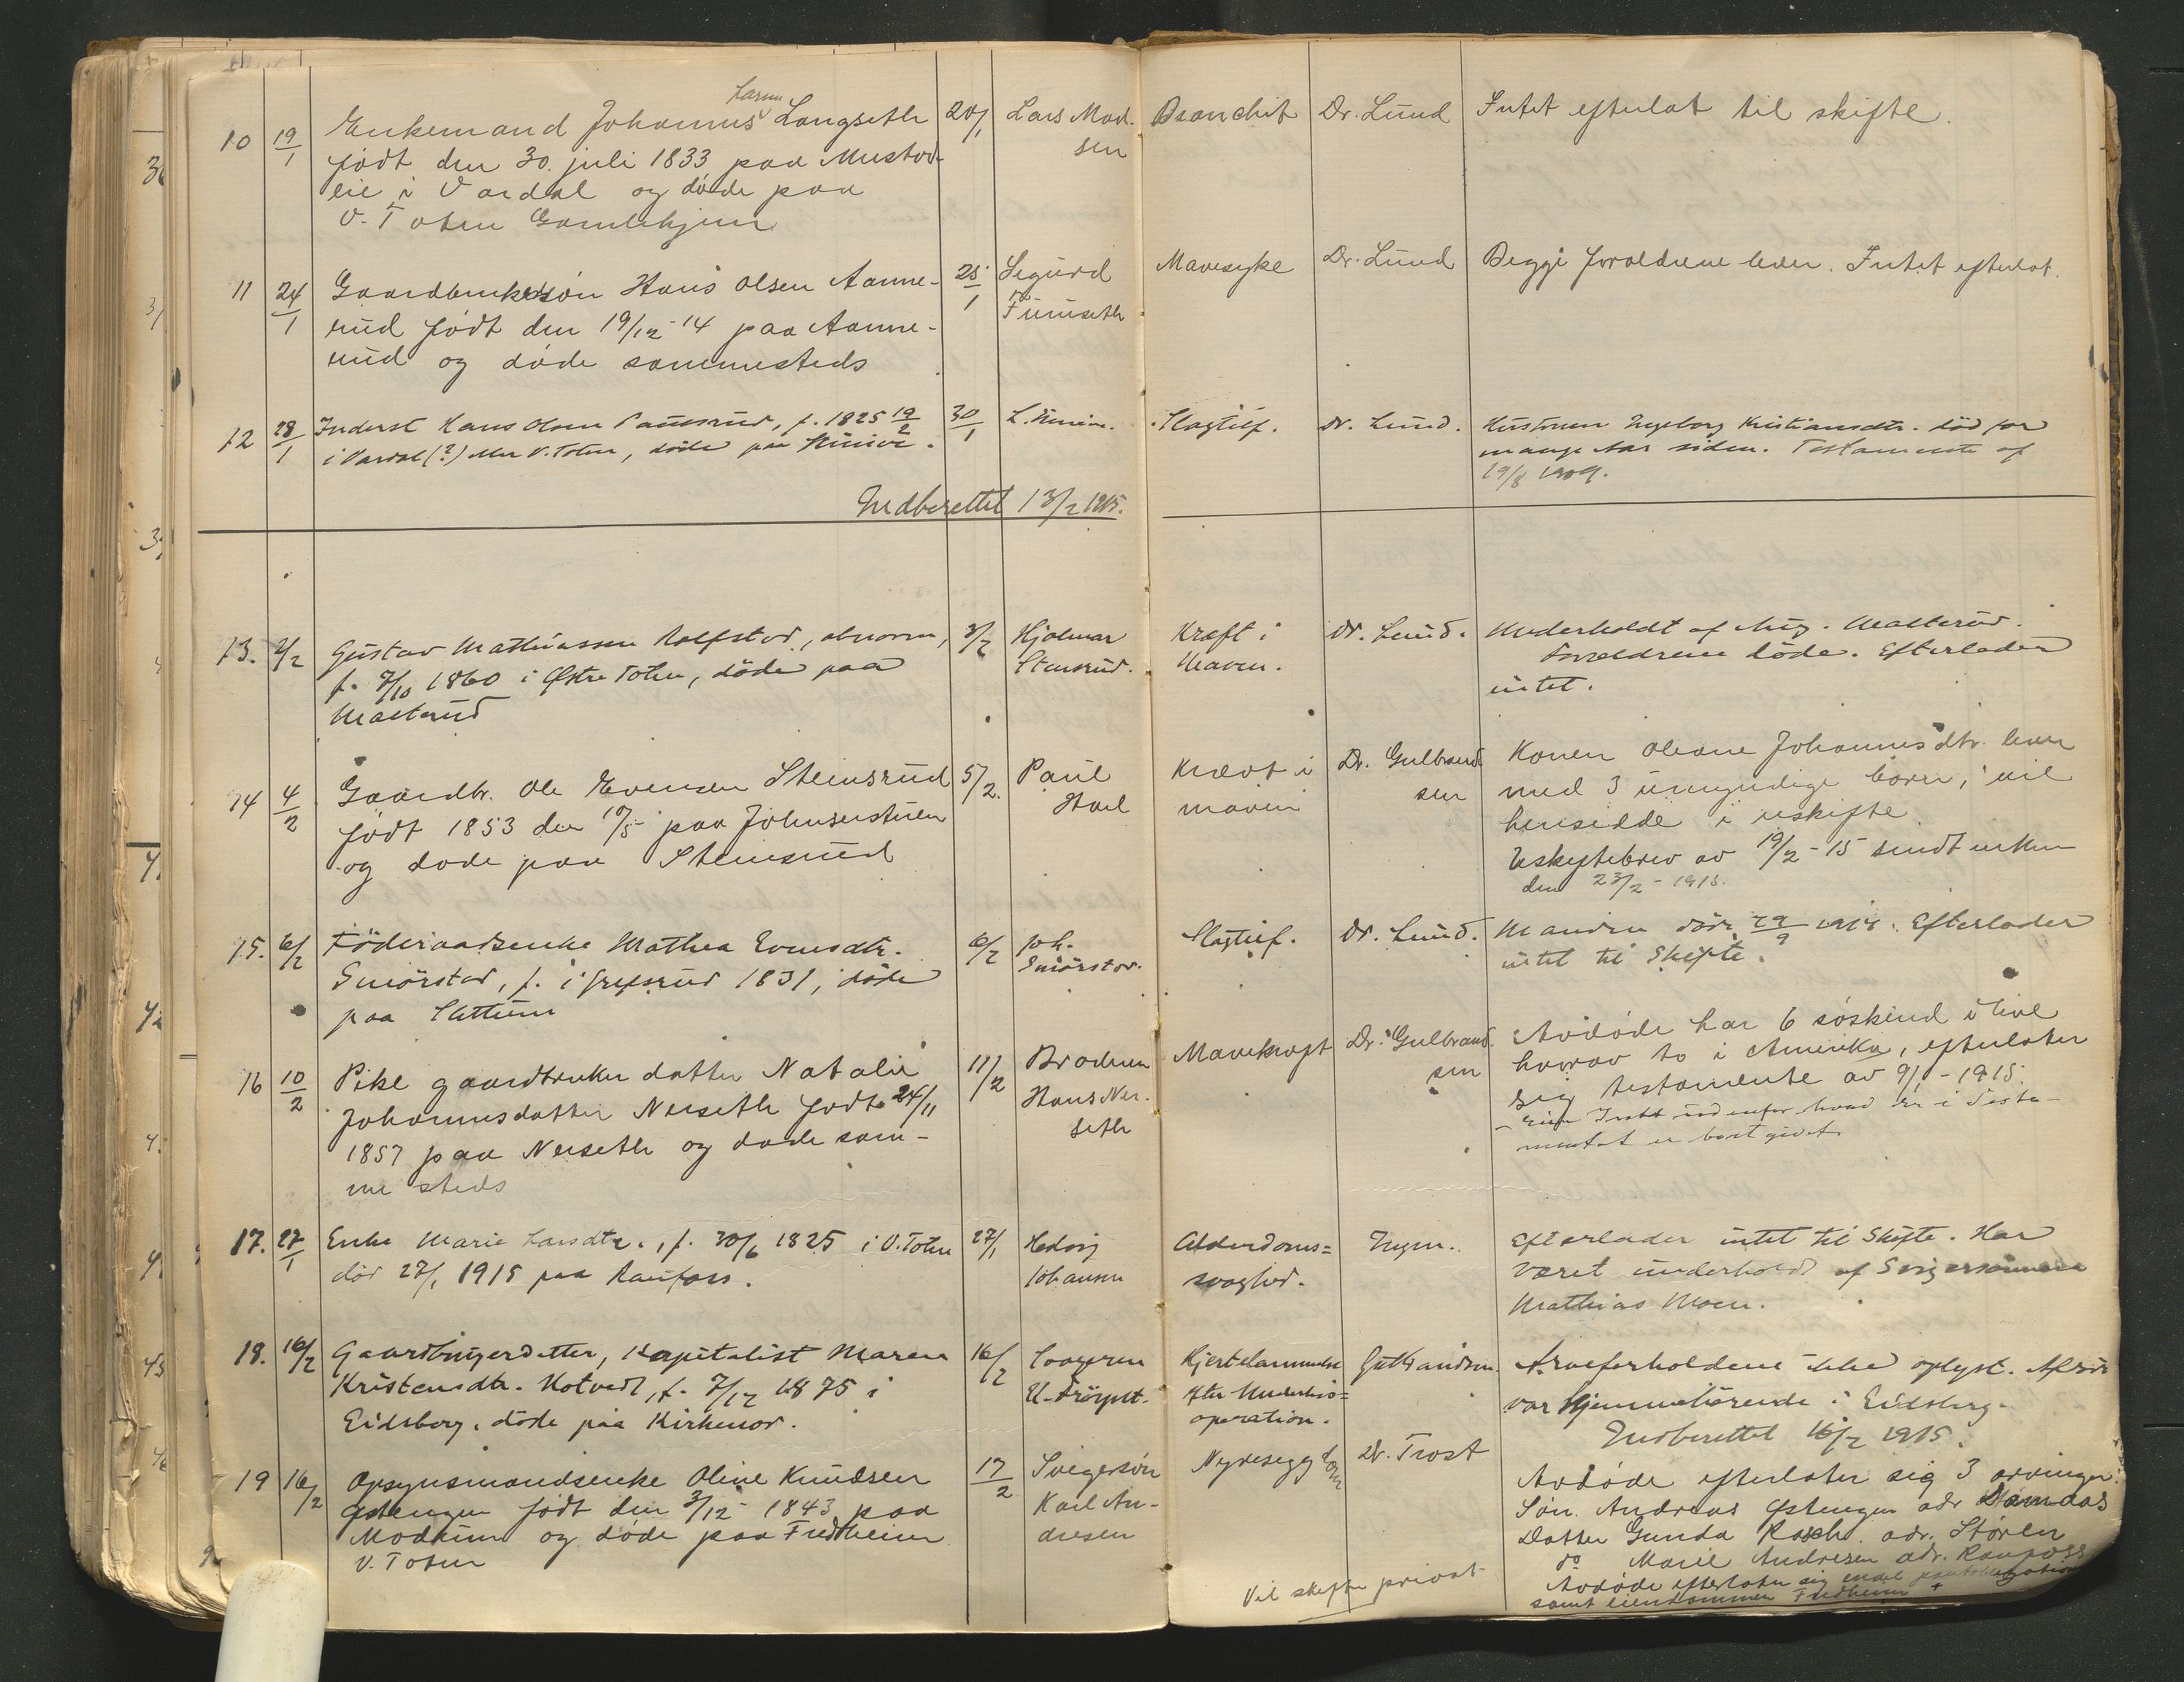 10 19/1 Enkemand Johannes Larsen Langseth 20/1 Lars Mad- Bronchit Dr. Lund Intet efterlat til skifte.
født den 30. juli 1833 paa Mustad- sen
eie i Vardal og døde paa
V. Toten Gamlehjem
11 24/1 Gaardbrukersøn Hans Olsen Aanne- 25/1 Sigurd Mavesyke Dr. Lund Begge forældrene lever. Intet efterlat.
rud født den 19/12-14 paa Aanne- Furuseth
rud og døde sammesteds
12 28/1 Inderst Hans Olsen Paulsrud, f. 1825 19/2 30/1 Slagtilf. Dr. Lund. Hustruen Ingeborg Kristiansdtr. død for
i Vardal (?) eller V. Toten, døde paa mange Aar siden. Testamente af
19/8 1909.
Indberettet 13/2 1915.
13. 2/2 Gustav Mathiassen Rolfstad, abnorm, 3/2 Hjalmar Kræft i Dr. Lund. Underholdt af Aug. Maalerud.
f. 7/10 1860 i Østre Toten, døde paa Stensrud. Maven. Forældrene døde. Efterlader
Maalerud intet.
14 4/2 Gaardbr. Ole Evensen Steinsrud 5/2. Paul Kræft i Dr. Gulbrand Konen Oleane Johannesdtr. lever
født 1853 den 10/5 paa Johnsenstuen Hoel maven sen med 3 umyndige børn, vil
og døde paa Steinsrud hensidde i uskifte.
Uskiftebrev av 19/2-15 sendt enken
den 23/2-1915.
15. 6/2 Føderaadsenke Mathea Evensdtr. 6/2 Joh. Slagtilf. Dr. Lund. Manden døde 29/9 1914. Efterlader
Smørstad, f. i Grefsrud 1831, døde Smørstad. intet til Skifte.
paa Slettum
16 10/2 Pike gaardbruker datter Natalie 11/2 Broderen Mavekræft Dr. Gulbrand Avdøde har 6 søskend i live
Johannesdatter Nerseth født 24/11 Hans Ner- sen hvorav to i Amerika, efterlater
1857 paa Nerseth og døde sam- seth sig testamente av 9/1-1915.
me steds mentet er bortgivet
17. 27/1 Enke Marie Larsdtr., f. 30/6 1825 i V. Toten 27/1 Hedvig Alderdoms= Ingen. Efterlader intet til Skifte. Har
død 27/1 1915 paa Raufoss. Johansen svaghed. været underholdt af Svigersønnen
Mathias Moen.
18. 16/2 Gaardbrugerdatter, Kapitalist Maren 16/2 Hjertelammelse Gulbrandsen Arveforholdene ikke oplyst. Afdøde
Kristensdtr. Kotvedt, f. 7/12 1875 i efter Underlivs= var hjemmehørende i Eidsberg.
Eidsberg, døde paa Kirkenor. operation. Indberettet 16/2 1915.
19 16/2 Opsynsmandsenke Oline Knudsen 17/2 Svigersøn Nyresygdom Dr. Trost Avdøde efterlater sig 3 arvinger.
Østengen født den 3/12-1843 paa Karl An- Søn. Andreas Østengen adr. Dømaas
Modum og døde paa Fredheim dresen Datter Gunda Rasch adr. Støren
V. Toten do Marie Andresen adr. Raufoss
Vil skifte privat Avdøde efterlater sig endel pantobligationer
samt eiendommen Fredheim